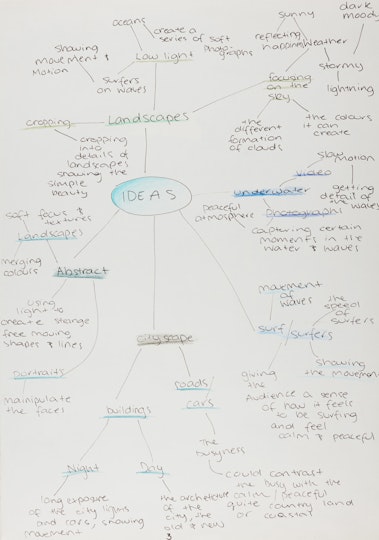 oceans
create a
series of soft
photo-
graphs
showing
movement &
Motion
Low light
Surfers
on waves
sunny
dark
moody
reflecting
happiness
Weather
stormy
lightning
focusing
on the
sky
the
different
formation
of clouds
the colours
it can
create
cropping
Landscapes
cropping
into
details of
landscapes
showing the
simple
beauty
IDEAS
video
Slow
Motion
underwater
getting
detail of
the waves
peaceful
atmosphere
Photographs
capturing certain
moments in the
water & waves
soft focus &
textures
Landscapes
merging
colours
Abstract
using
light to
create strange
free moving
shapes & lines
portraits
manipulate
the faces
movement
of
waves
the
speed of
surfers
surf
surfers
giving
the
Audience a sense
of how it feels
to be surfing
and feel
calm & peaceful
showing
the movement
cityscape
roads
cars
buildings
The
busyness
could contrast
the busy with the
calm / peaceful
quite country land
or coastal
Night
Day
long exposure
of the city lights
and cars, showing
movement
the architecture
of the
city, the
old & new
3